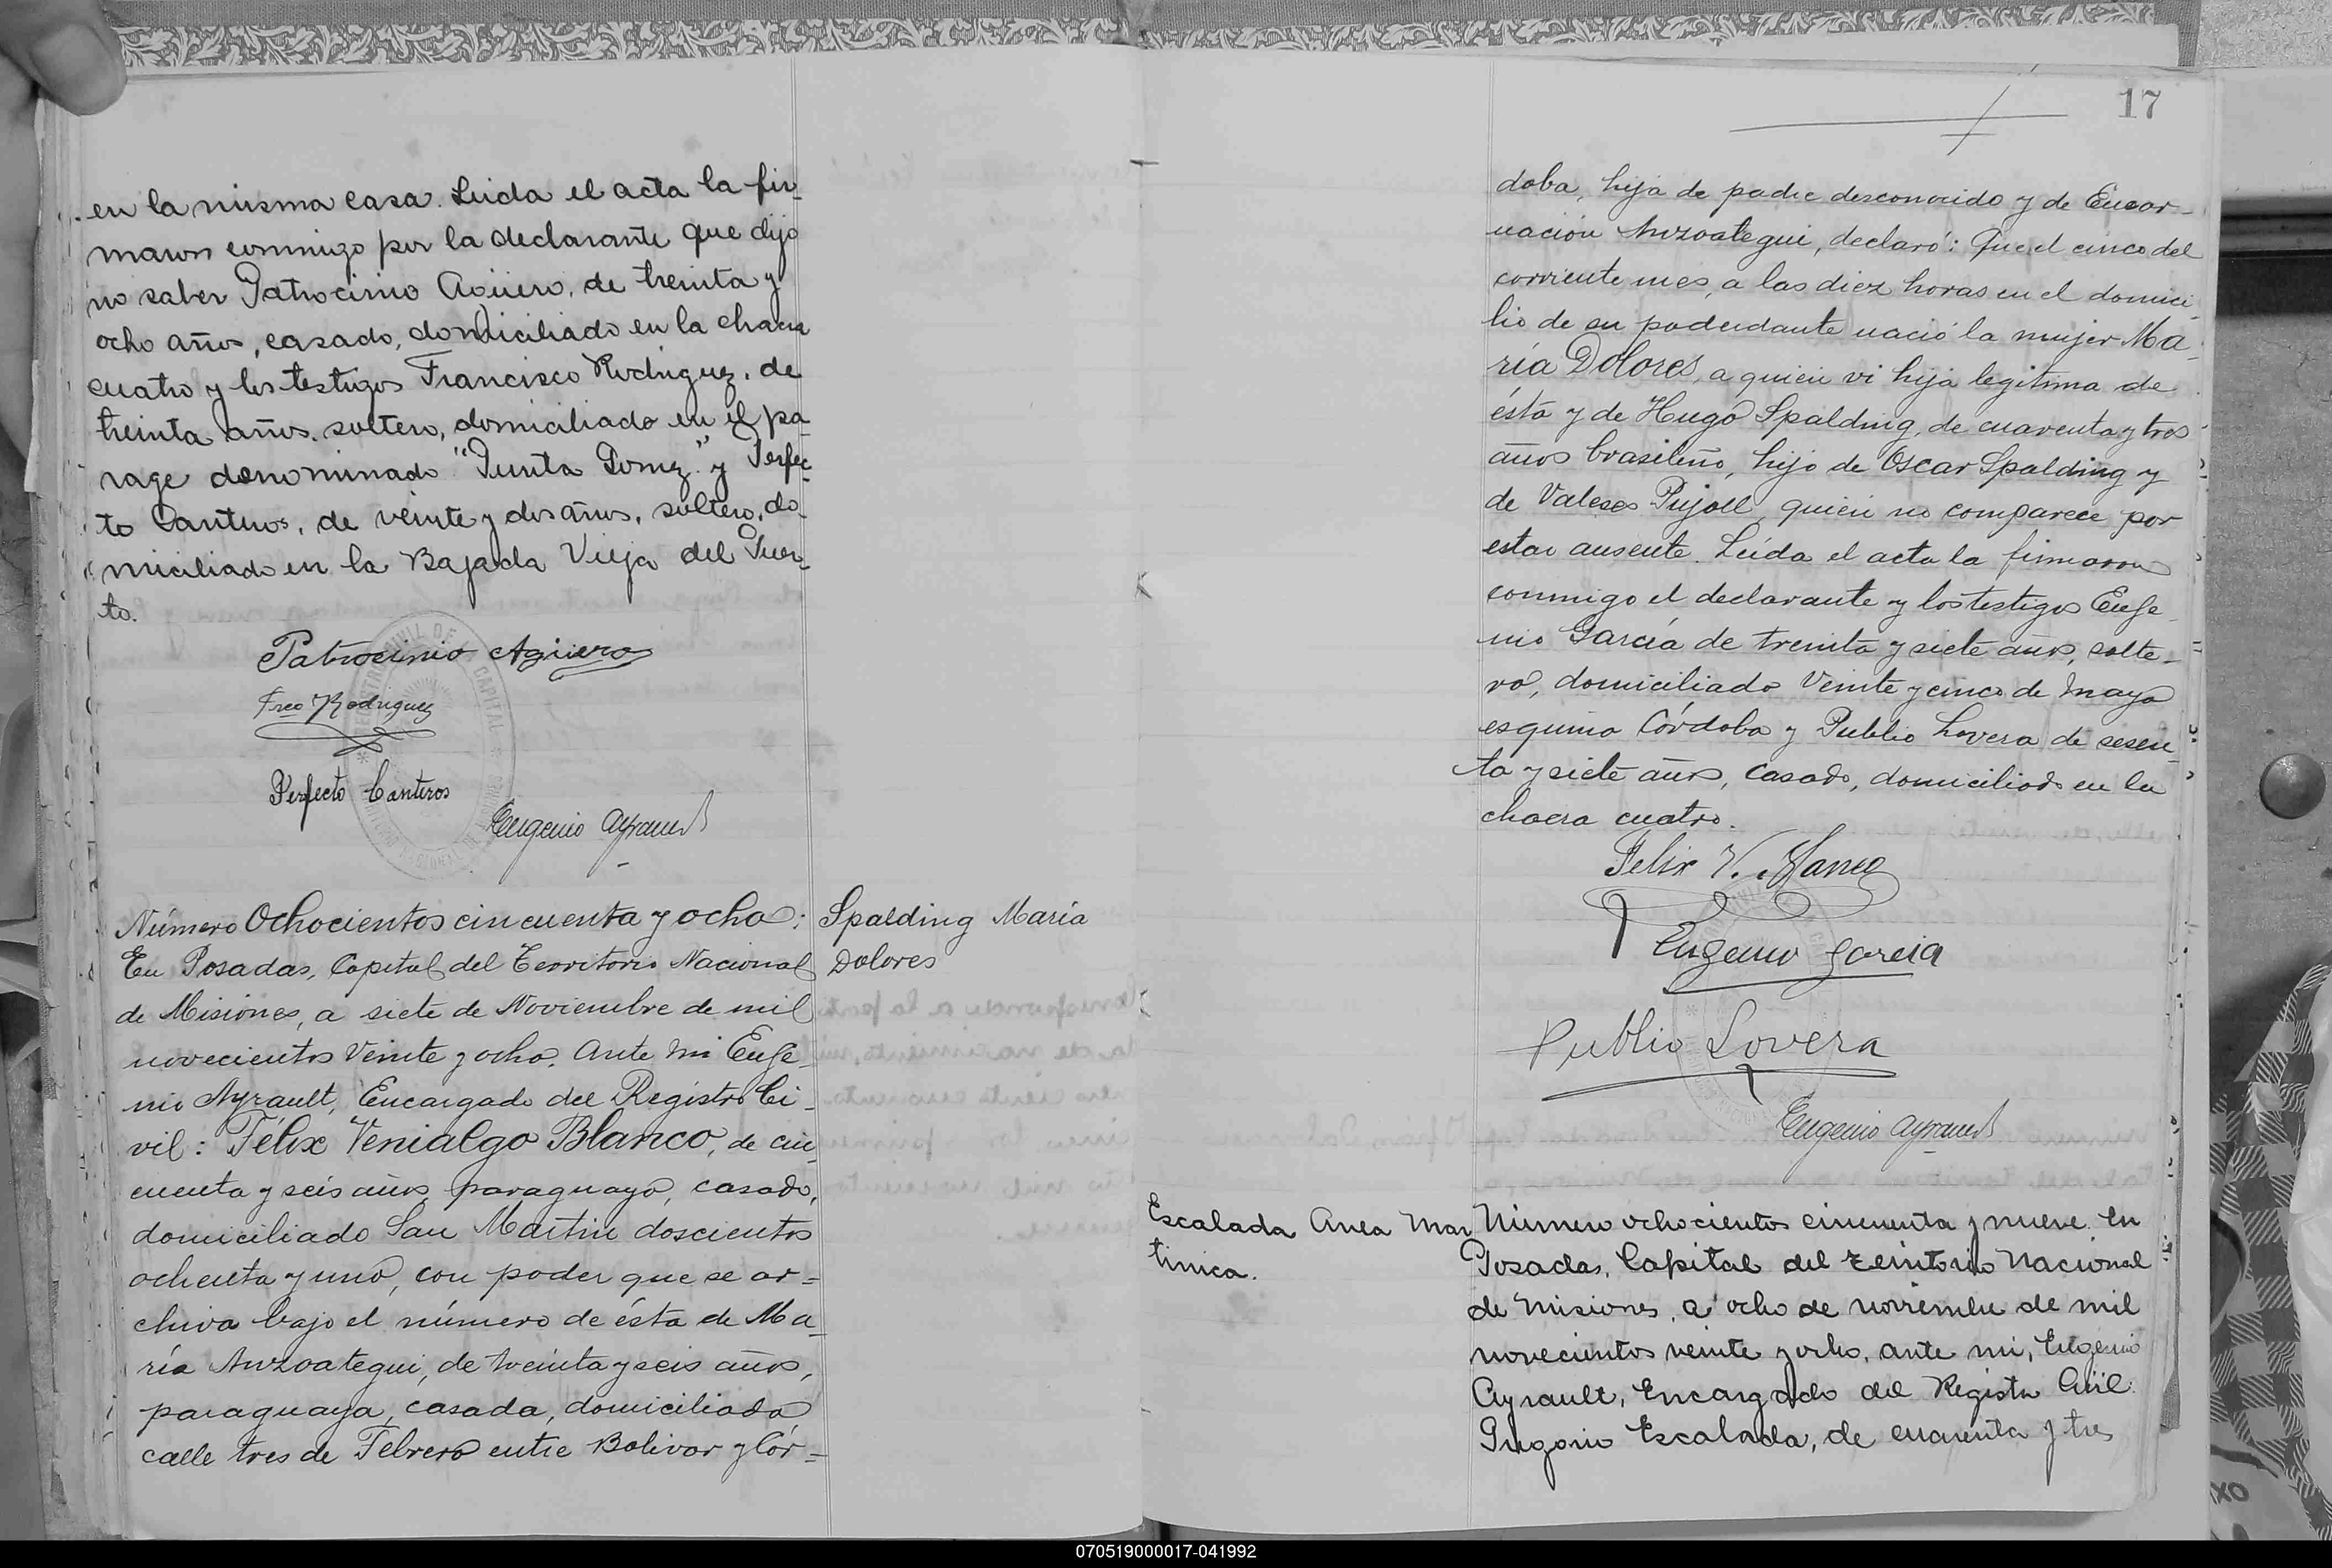 en la misma casa. Leida el acta la fir-
maron conmigo por la declarante que dijo
no saber Patrocinio Agüero, de treinta y
ocho años, casado, domiciliado en la chacra
cuatro y los testigos Francisco Rodriguez, de
treinta años, soltero, domiciliado en el pa-
rage denominado "Punta Gomez" y Perfec-
to Canteros, de veinte y dos años, soltero, do-
miciliado en la Bajada Vieja del Puer-
to.
Patrocinio Agüero
Frco Rodriguez
Perfecto Canteros
Eugenio Ayrault
Número Ochocientos cincuenta y ocho:
En Posadas, Capital del Territorio Nacional
de Misiones, a siete de Noviembre de mil
novecientos Veinte y ocho. Ante mi Euge-
nio Ayrault, Encargado del Registro Ci-
vil: Félix Venialgo Blanco, de cin-
cuenta y seis años, paraguayo, casado,
domiciliado San Martin doscientos
ochenta y uno, con poder que se ar-
chiva bajo el número de ésta de Ma-
ría Anzoategui, de treinta y seis años,
paraguaya, casada, domiciliada
calle tres de Febrero entre Bolivar y Cór-
Spalding María
Dolores
17
doba, hija de padre desconocido y de Encar-
nación Anzoategui, declaró: Que el cinco del
corriente mes, a las diez horas en el domici-
lio de su poderdante nació la mujer Ma-
ría Dolores, a quien vi hija legitima de
ésta y de Hugo Spalding, de cuarenta y tres
años brasileño, hijo de Oscar Spalding y
de Pujoll, quien no comparece por
estar ausente. Leída el acta la firmaron
conmigo el declarante y los testigos Euge-
nio García de treinta y siete años, solte-
ro, domiciliado Veinte y cinco de Mayo
esquina Córdoba y Publio Lovera de sesen-
ta y siete años, casado, domiciliado en la
chacra cuatro.
Felix V. Blanco
Eugenio Garcia
Publio Lovera
Eugenio Ayrault
Escalada Ana Mar
tinica.
Número ochocientos cincuenta y nueve. En
Posadas, Capital del Territorio Nacional
de Misiones, a ocho de noviembre de mil
novecientos veinte y ocho, ante mi, Eugenio
Ayrault, Encargado del Registro Civil:
Gregorio Escalada, de cuarenta y tres
070519000017-041992